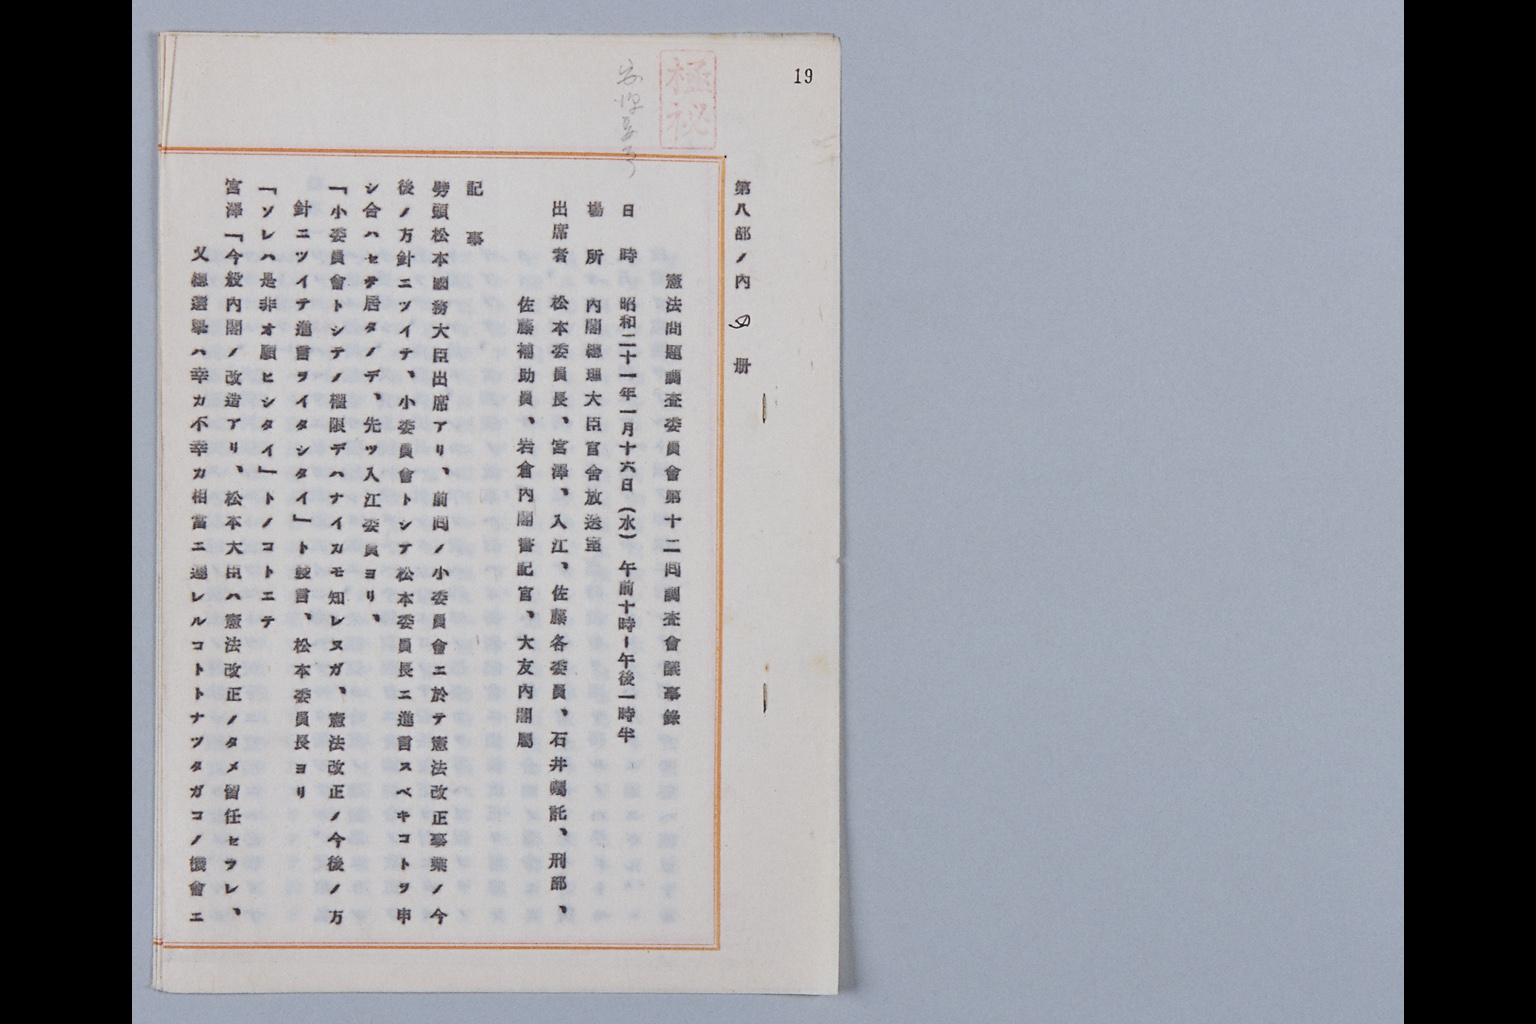 19
極秘
第八部ノ内 冊
憲法問題調査委員會第十二囘調査會議事錄
日 時 昭和二十一年一月十六日(水) 午前十時ー午後一時半
場 所 內閣總理大臣官舍放送室
出席者 松本委員長、宮澤、入江、佐藤各委員、石井囑託、刑部、
佐藤補助員、岩倉內閣書記官、大友內閣屬
記 事
劈頭松本國務大臣出席アリ、前囘ノ小委員會ニ於テ憲法改正事業ノ今
後ノ方針ニツイテ、小委員會トシテ松本委員長ニ進言スベキコトヲ申
シ合ハセテ居タノデ、先ヅ入江委員ヨリ、
「小委員會トシテノ權限デハナイカモ知レヌガ、憲法改正ノ今後ノ方
針ニツイテ進言ヲイタシタイ」ト發言、松本委員長ヨリ
「ソレハ是非オ願ヒシタイ」トノコトニテ
宮澤「今般內閣ノ改造アリ、松本大臣ハ憲法改正ノタメ留任セラレ、
又總選擧ハ幸カ不幸カ相當ニ遲レルコトトナツタガコノ機會ニ